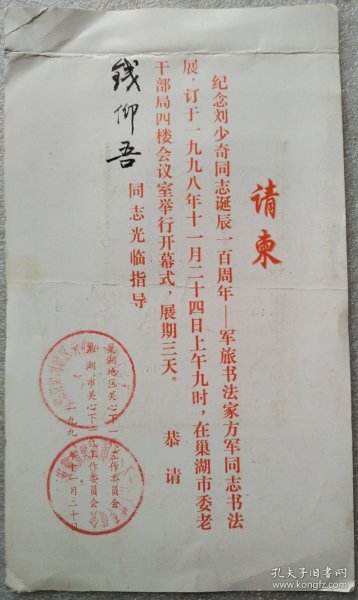 请柬
纪念刘少奇同志诞辰一百周年——军旅书法家方军同志书法
展，订于一九九八年十一月二十四日上午九时，在巢湖市委老
干部局四楼会议室举行开幕式，展期三天。 恭请
钱仰吾 同志光临指导
巢湖地区关心下一代工作委员会
巢湖市关心下一代工作委员会
孔夫子旧书网